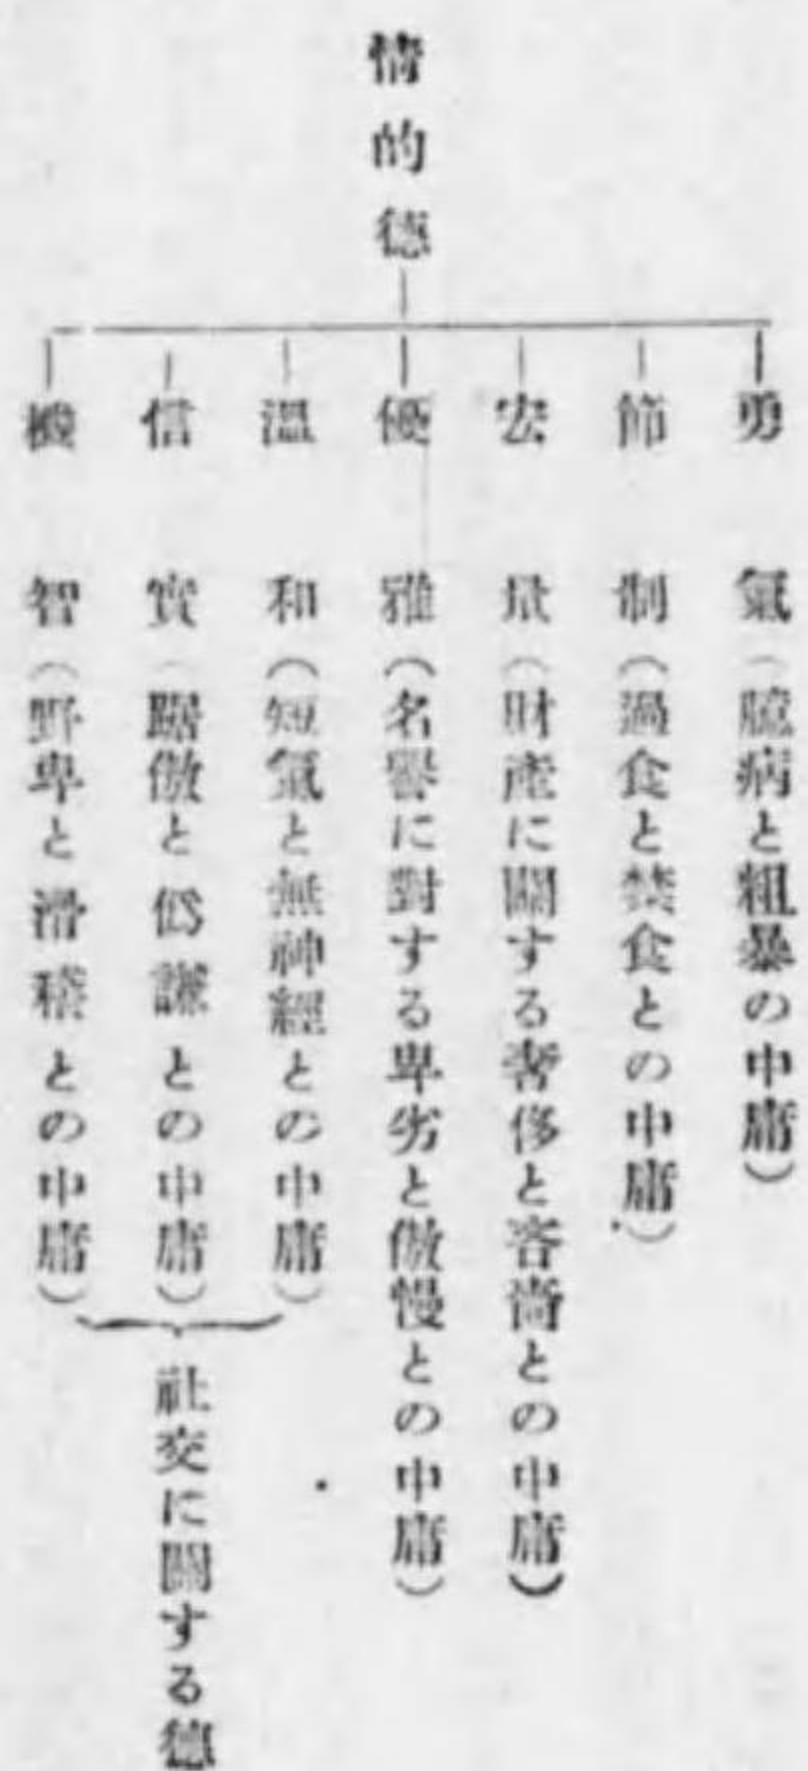 情的德
勇氣（臆病と粗暴の中庸）
節制（過食と禁食との中庸）
宏量（財產に關する奢侈と吝嗇との中庸）
優雅（名譽に對する卑劣と傲慢との中庸）
溫和（短氣と無神經との中庸）
信實（踞傲と僞謙との中庸）
機智（野卑と滑稽との中庸）
社交に關する德